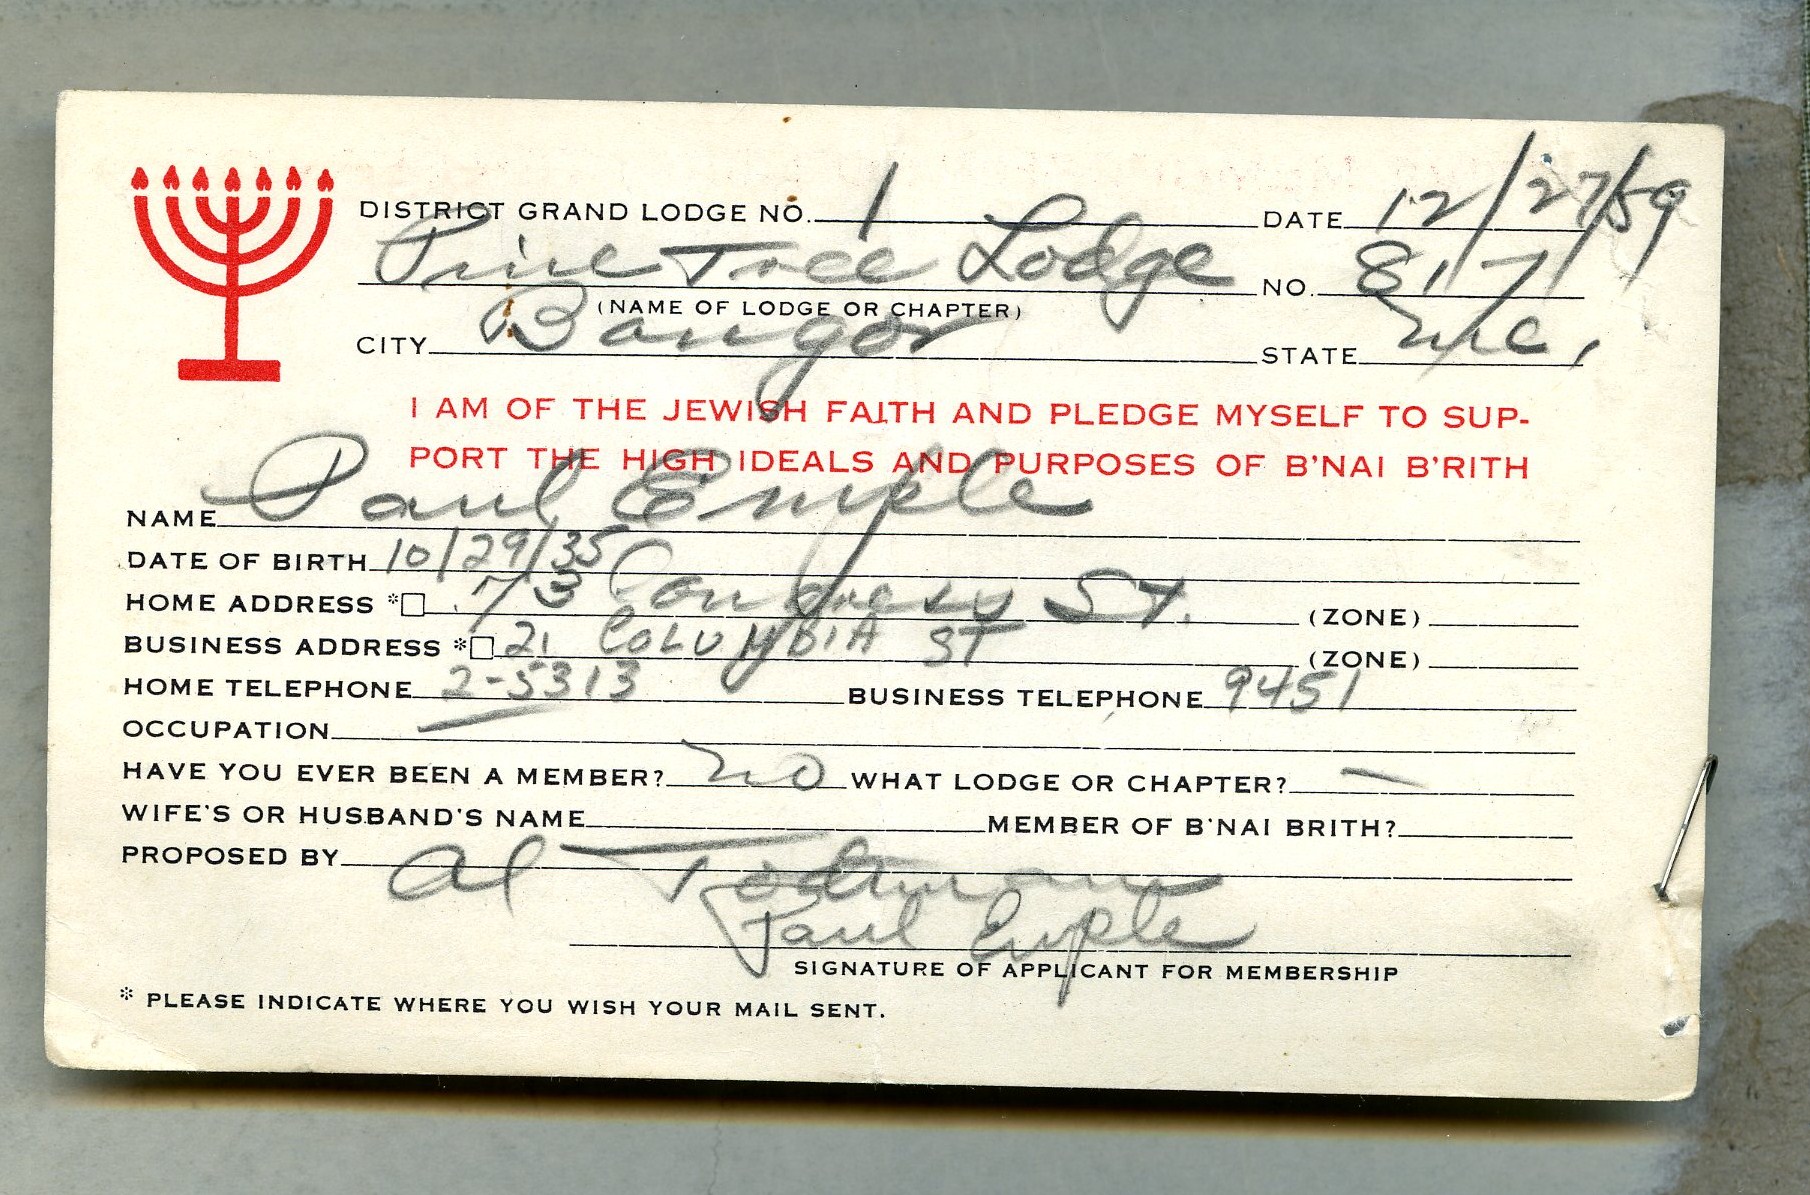 DISTRICT GRAND LODGE NO. 1 DATE 12/27/59
Pine Tree Lodge NO. 817
(NAME OF LODGE OR CHAPTER)
CITY Bangor STATE Me.
I AM OF THE JEWISH FAITH AND PLEDGE MYSELF TO SUP-
PORT THE HIGH IDEALS AND PURPOSES OF B'NAI B'RITH
NAME Paul Emple
DATE OF BIRTH 10/29/35
HOME ADDRESS *☐ 73 Congress St. (ZONE)
BUSINESS ADDRESS *☐ 21 COLUMBIA ST (ZONE)
HOME TELEPHONE 2-5313 BUSINESS TELEPHONE 9451
OCCUPATION —
HAVE YOU EVER BEEN A MEMBER? no WHAT LODGE OR CHAPTER? —
WIFE'S OR HUSBAND'S NAME — MEMBER OF B'NAI BRITH?
PROPOSED BY Al Todtman
Paul Emple
SIGNATURE OF APPLICANT FOR MEMBERSHIP
* PLEASE INDICATE WHERE YOU WISH YOUR MAIL SENT.